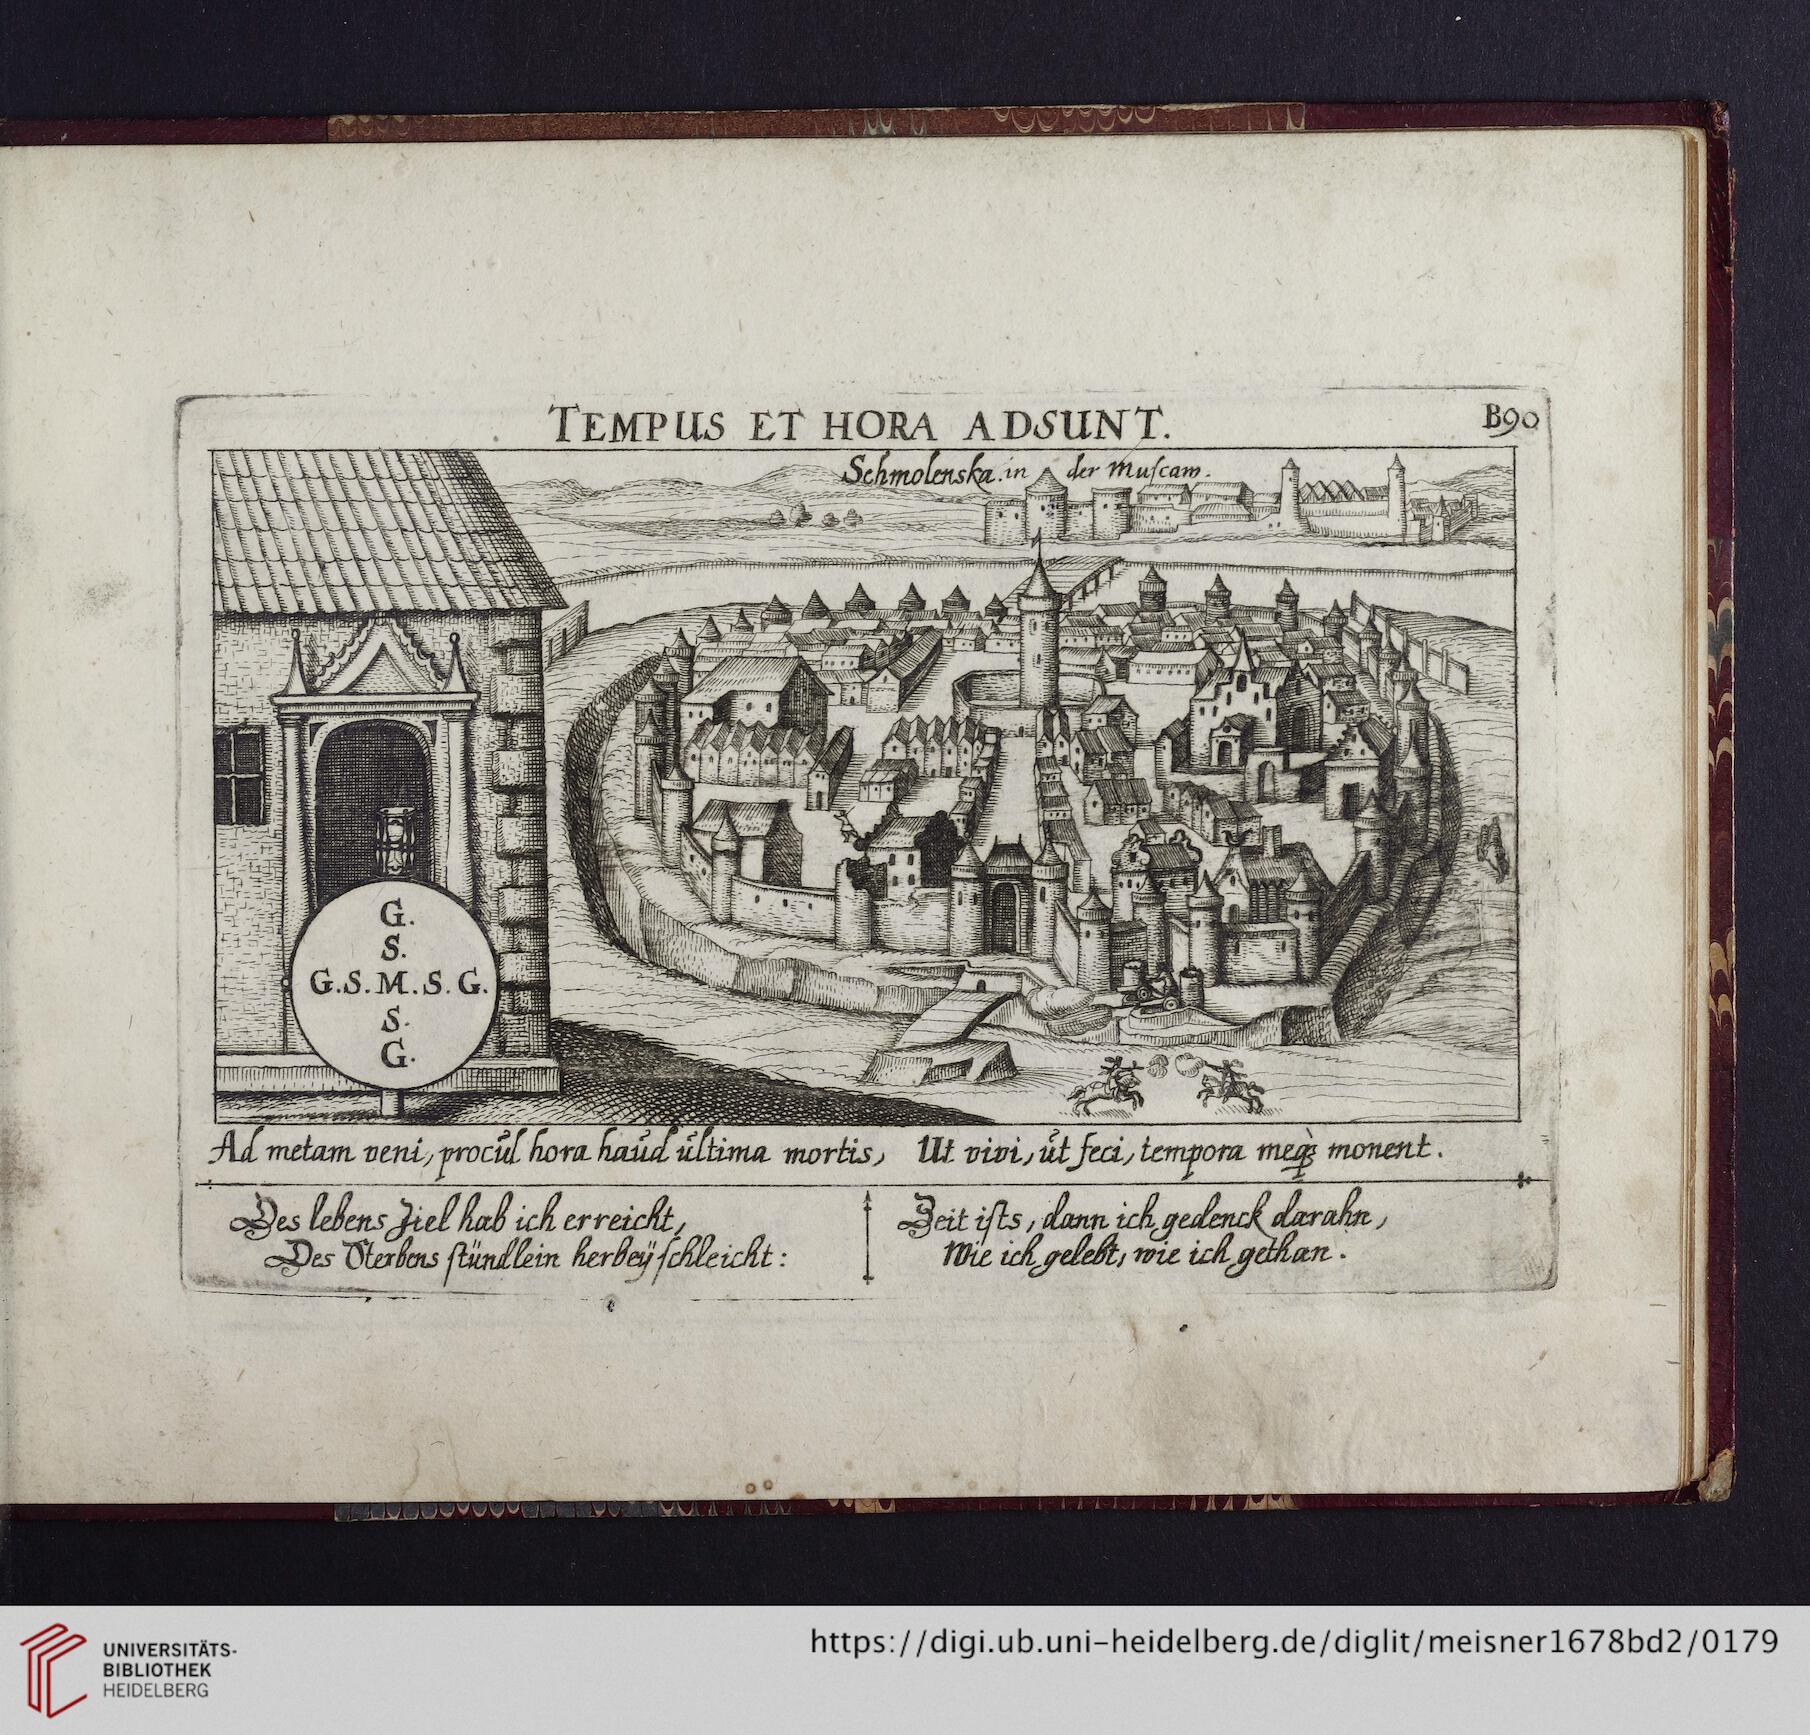 TEMPUS ET HORA ADSUNT.
B90
Schmolenska. in der Muſcaw.
G.
S.
G.S.M.S.G.
S.
G.
Ad metam veni, procŭl hora haŭd ŭltima mortis, Ut vivi, ŭt feci, tempora meq₃ monent.
Des lebens Ziel hab ich erreicht,
Des Sterbens ſtündlein herbeÿ ſchleicht:
Zeit iſts, dann ich gedenck darahn,
Wie ich gelebt, wie ich gethan.
UNIVERSITÄTS-
BIBLIOTHEK
HEIDELBERG
https://digi.ub.uni-heidelberg.de/diglit/meisner1678bd2/0179